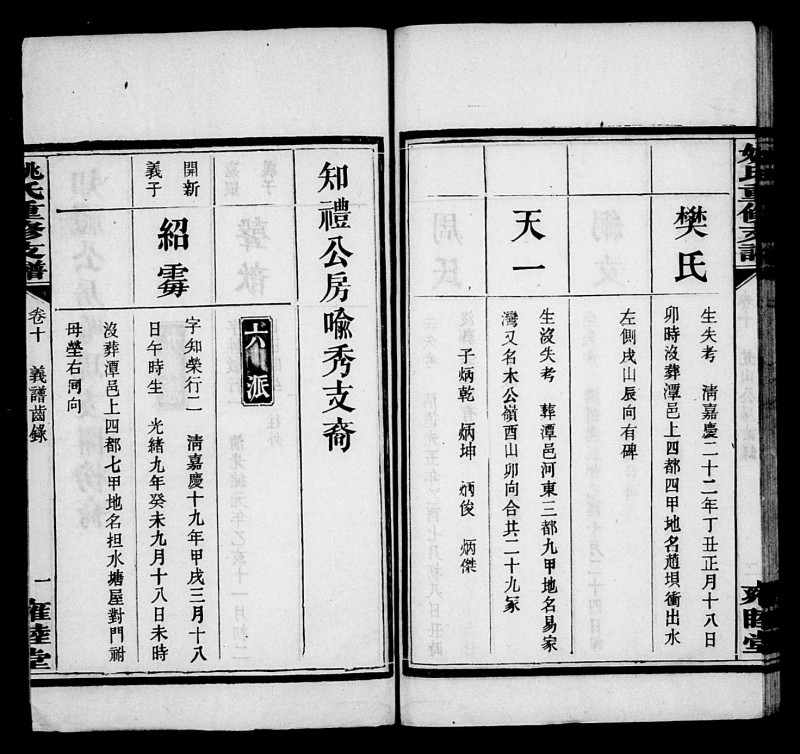 樊氏
生失考　清嘉慶二十二年丁丑正月十八日
卯時沒葬潭邑上四都四甲地名趙垻衝出水
左側戌山辰向有碑
天一
生沒失考　葬潭邑河東三都九甲地名易家
灣又名木公嶺酉山卯向合共二十九冢
子炳乾　炳坤　炳俊　炳傑
知禮公房喻秀支裔
六派
開新
義子
紹霱
字知榮行二　清嘉慶十九年甲戌三月十八
日午時生　光緒九年癸未九月十八日未時
沒葬潭邑上四都七甲地名担水塘屋對門祔
母塋右同向
姚氏重修支譜
卷十　義譜齒錄
一
雍睦堂